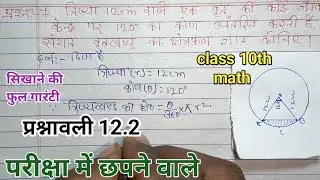 प्रश्न-1. त्रिज्या 12cm वाले एक वृत्त की कोई जीवा
केन्द्र पर 120° का कोण अंतरित करती है
संगत वृत्तखण्ड का क्षेत्रफल ज्ञात कीजिए।
हल:- दिया है
त्रिज्या (r) = 12cm
कोण (θ) = 120°
∵ त्रिज्यखण्ड का क्षे० = θ/360° × πr²
class 10th
math
सिखाने की
फुल गारंटी
प्रश्नावली 12.2
परीक्षा में छपने वाले